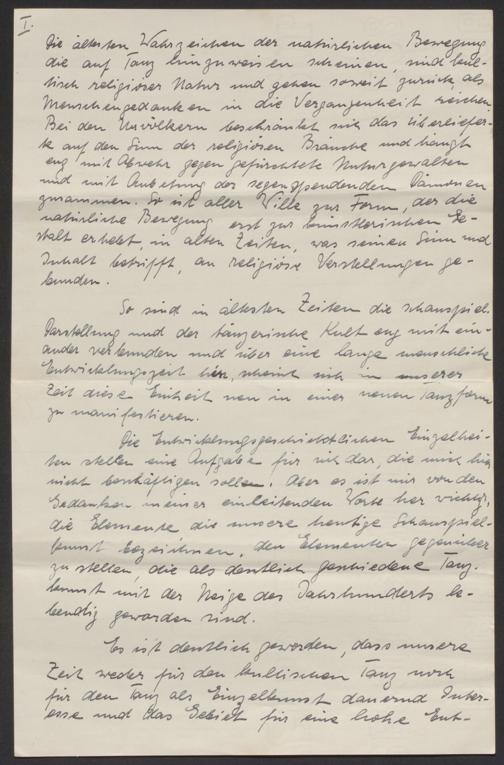 I.
Die ältesten Wahrzeichen der natürlichen Bewegung
die auf Tanz hinzuweisen scheinen, sind kul-
tisch religiöser Natur und gehen soweit zurück als
Menschengedanken in die Vergangenheit reichen.
Bei den Urvölkern beschränkt sich das Überliefer-
te auf den Sinn der religiösen Bräuche und hängt
eng mit Abwehr gegen gefürchtete Naturgewalten
und mit Anbetung der segenspendenden Dämonen
zusammen. So ist aller Wille zur Form, der die
natürliche Bewegung erst zur künstlerischen Ge-
stalt erhebt, in alten Zeiten, was seinen Sinn und
Inhalt betrifft, an religiöse Vorstellungen ge-
bunden.
So sind in ältesten Zeiten die schauspiel.
Darstellung und der tänzerische Kult eng mit ein-
ander verbunden und über eine lange menschliche
Entwicklungszeit hin, scheint sich in unserer
Zeit diese Einheit neu in einer neuen Tanzform
zu manifestieren.
Die Entwicklungsgeschichtlichen Einzelhei-
ten stellen eine Aufgabe für sich dar, die mich hier
nicht beschäftigen sollen. Aber es ist mir von den
Gedanken meiner einleitenden Worte her wichtig,
die Elemente die unsere heutige Schauspiel-
kunst bezeichnen, den Elementen gegenüber
zu stellen, die als deutlich geschiedene Tanz-
kunst mit der Neige des Jahrhunderts le-
bendig geworden sind.
Es ist deutlich geworden, dass unsere
Zeit weder für den kultischen Tanz noch
für den Tanz als Einzelkunst dauernd Inter-
esse und das Gebiet für eine hohe Ent-